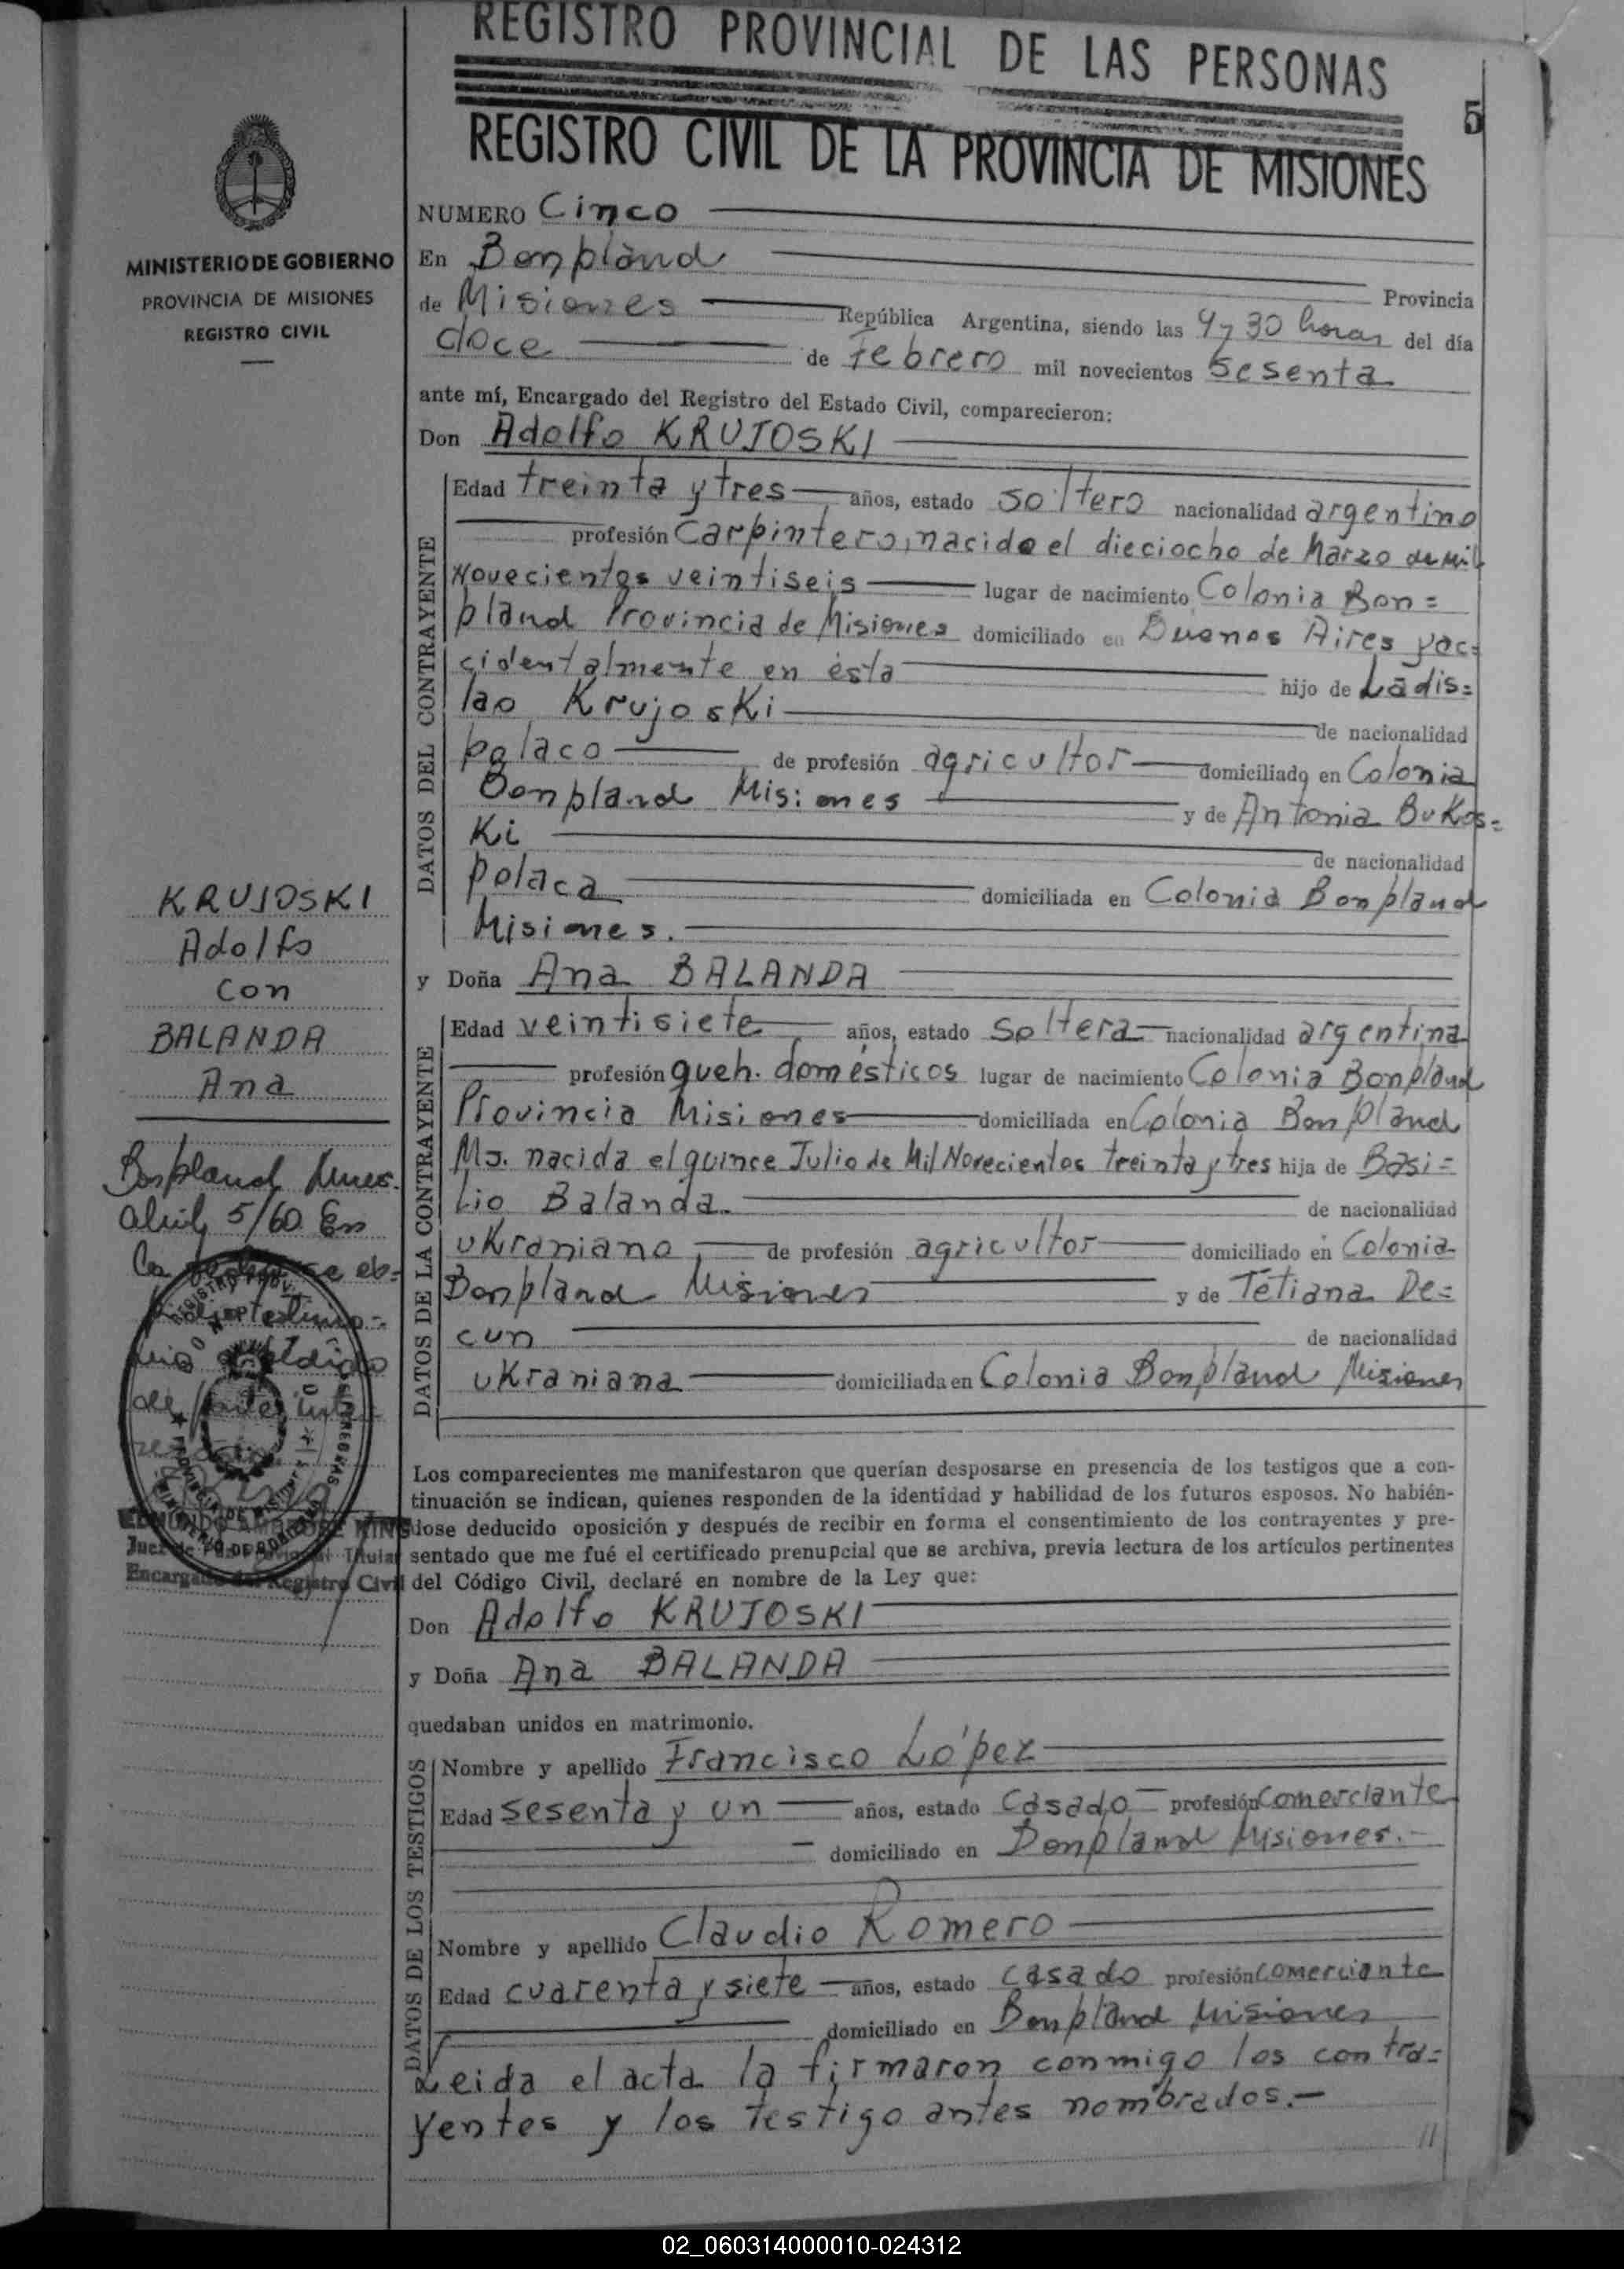 REGISTRO PROVINCIAL DE LAS PERSONAS
5
REGISTRO CIVIL DE LA PROVINCIA DE MISIONES
MINISTERIO DE GOBIERNO
PROVINCIA DE MISIONES
REGISTRO CIVIL
NUMERO Cinco
En Bonpland
Provincia
de Misiones República Argentina, siendo las 9 y 30 horas del día
doce de Febrero mil novecientos Sesenta
ante mí, Encargado del Registro del Estado Civil, comparecieron:
Don Adolfo KRUJOSKI
DATOS DEL CONTRAYENTE
Edad treinta y tres años, estado soltero nacionalidad argentino
profesión Carpintero, nacido el dieciocho de Marzo de Mil
Novecientos veintiseis lugar de nacimiento Colonia Bon=
pland Provincia de Misiones domiciliado en Buenos Aires y ac=
cidentalmente en ésta hijo de Ladis=
lao Krujoski
de nacionalidad
polaco de profesión agricultor domiciliado en Colonia
Bonpland Misiones y de Antonia Bukos=
ki
de nacionalidad
polaca domiciliada en Colonia Bonpland
Misiones.
y Doña Ana BALANDA
DATOS DE LA CONTRAYENTE
Edad veintisiete años, estado soltera nacionalidad argentina
profesión queh. domésticos lugar de nacimiento Colonia Bonpland
Provincia Misiones domiciliada en Colonia Bonpland
Ms. nacida el quince Julio de Mil Novecientos treinta y tres hija de Basi=
lio Balanda.
de nacionalidad
ukraniano de profesión agricultor domiciliado en Colonia
Bonpland Misiones y de Tetiana De=
cun
de nacionalidad
ukraniana domiciliada en Colonia Bonpland Misiones
KRUJOSKI
Adolfo
con
BALANDA
Ana
Bonpland
abril 5/60 En
Encargado del Registro Civil
Los comparecientes me manifestaron que querían desposarse en presencia de los testigos que a con-
tinuación se indican, quienes responden de la identidad y habilidad de los futuros esposos. No habién-
dose deducido oposición y después de recibir en forma el consentimiento de los contrayentes y pre-
sentado que me fué el certificado prenupcial que se archiva, previa lectura de los artículos pertinentes
del Código Civil, declaré en nombre de la Ley que:
Don Adolfo KRUJOSKI
y Doña Ana BALANDA
quedaban unidos en matrimonio.
DATOS DE LOS TESTIGOS
Nombre y apellido Francisco López
Edad sesenta y un años, estado Casado profesión Comerciante
domiciliado en Bonpland Misiones.
Nombre y apellido Claudio Romero
Edad cuarenta y siete años, estado casado profesión comerciante
domiciliado en Bonpland Misiones
Leida el acta la firmaron conmigo los contra=
yentes y los testigo antes nombrados.
02_060314000010-024312